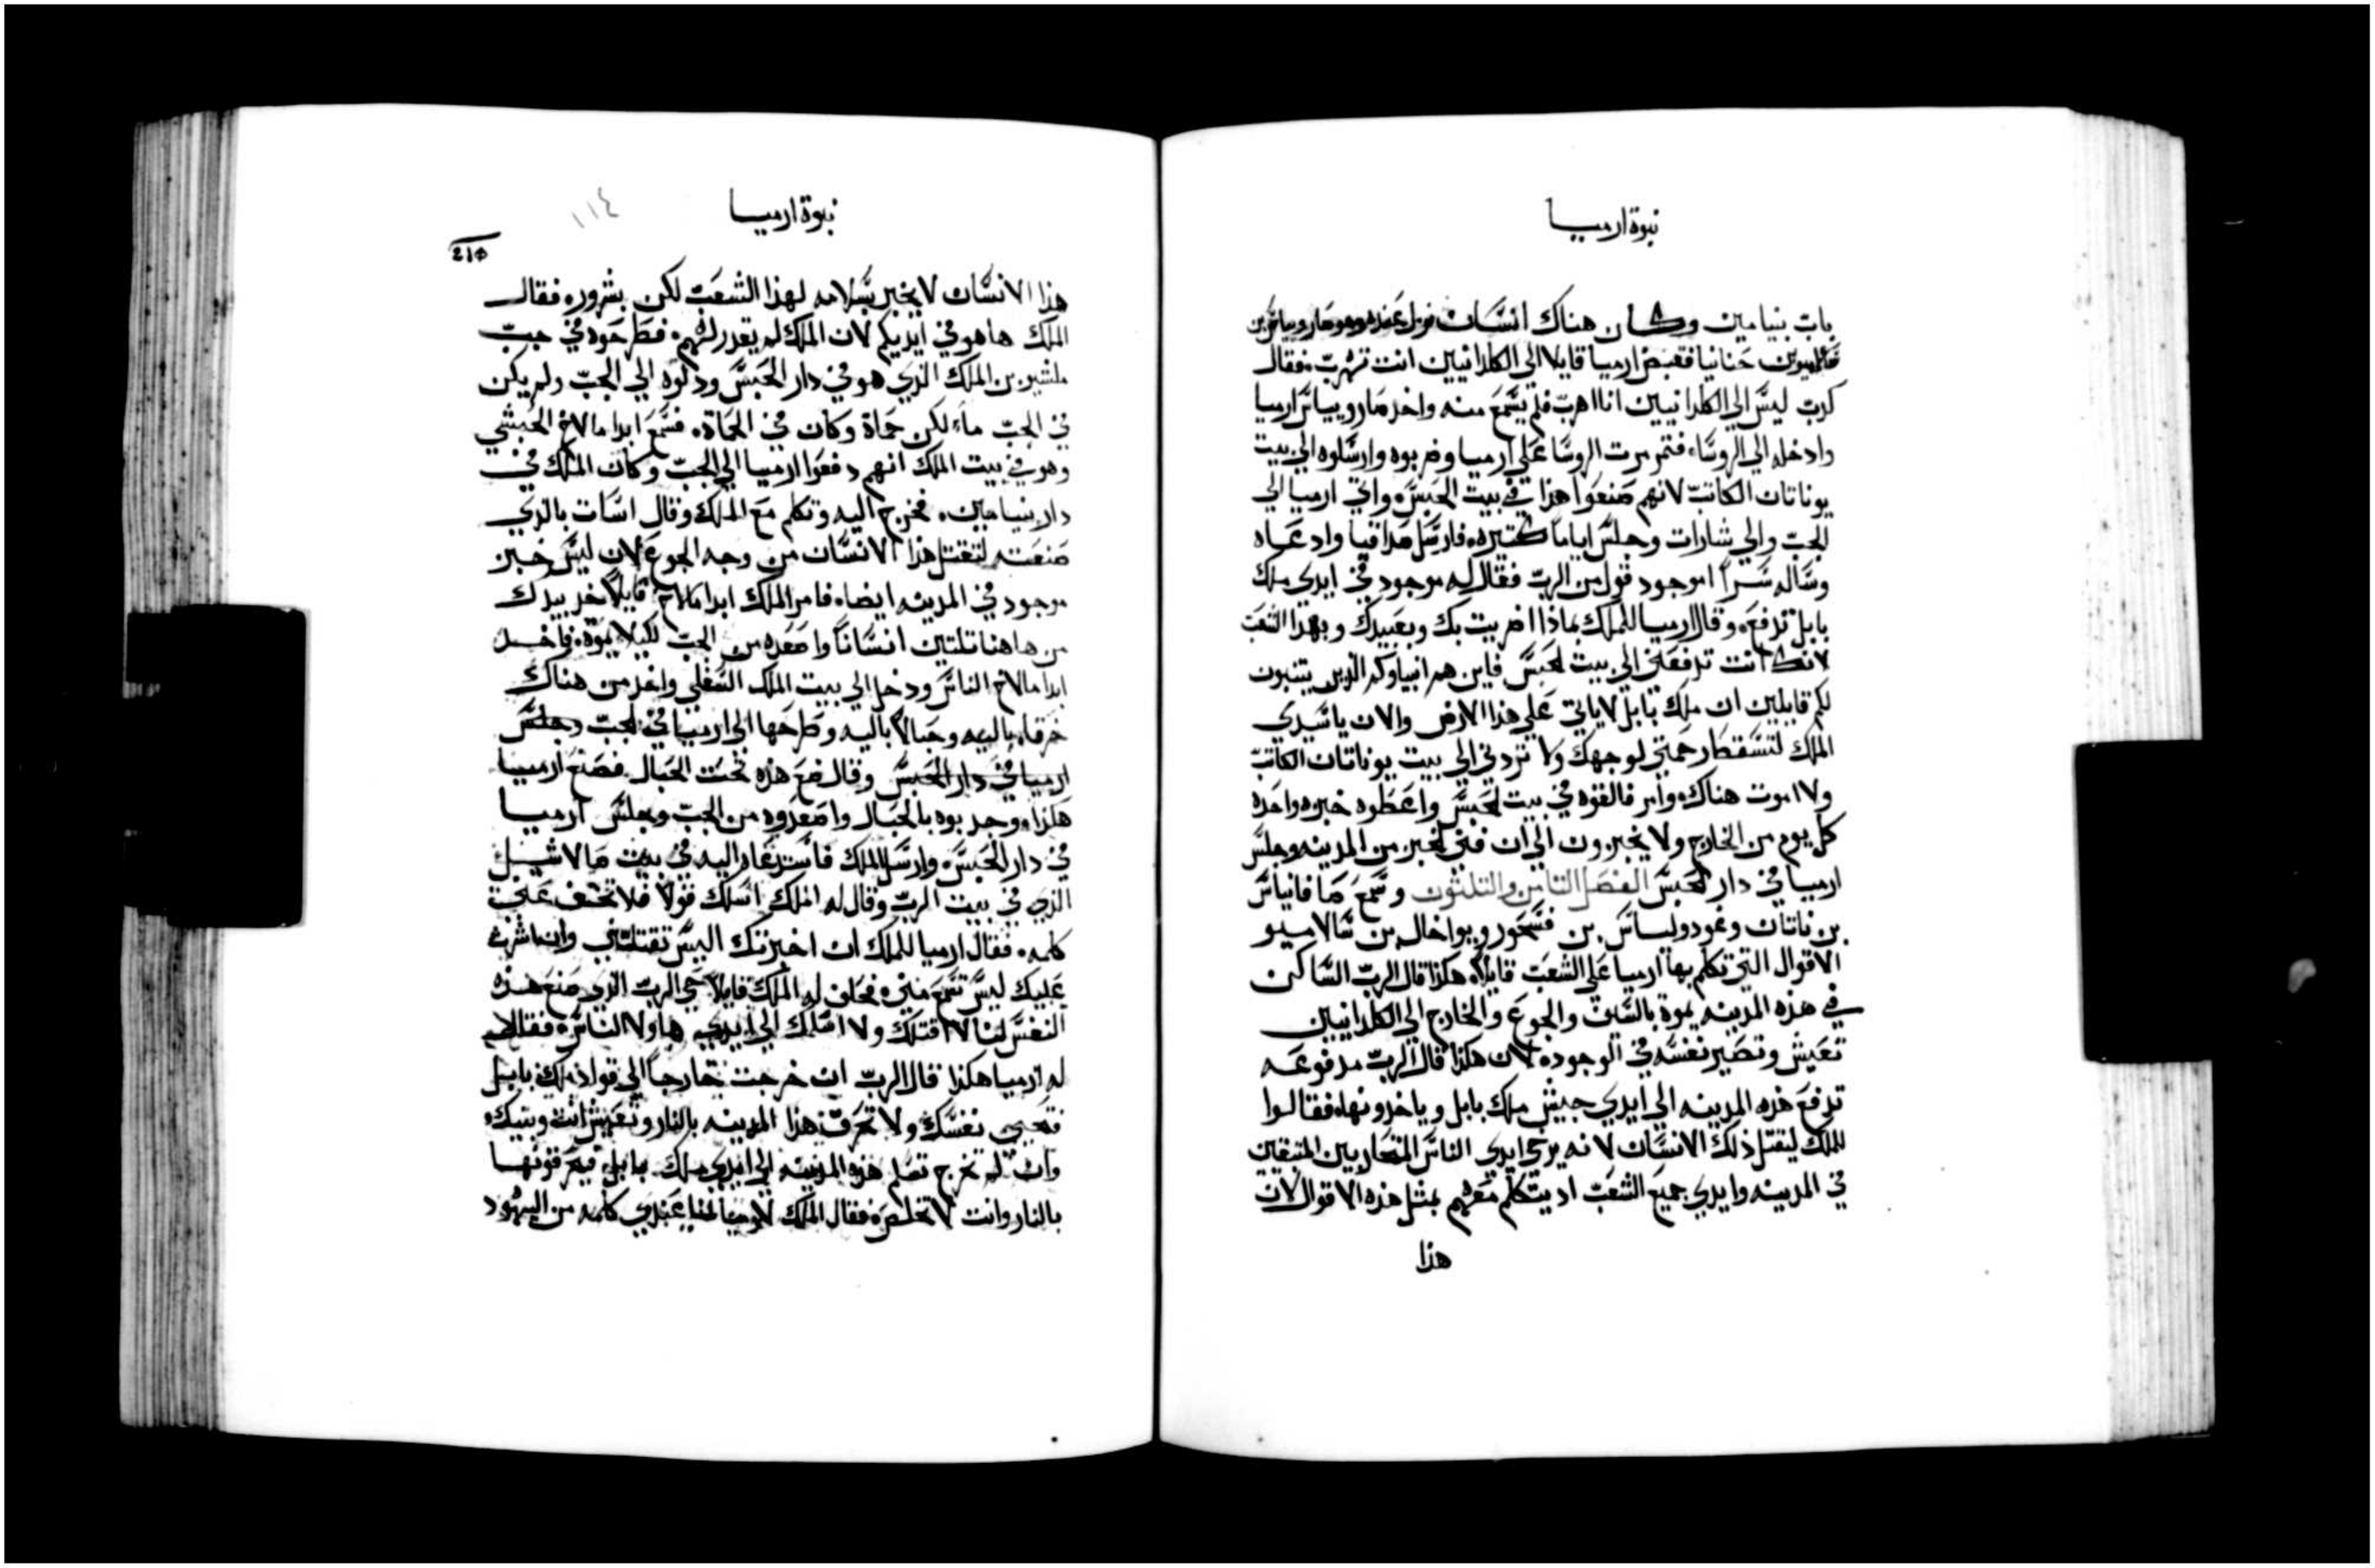 نبوة ارميا
باب بنيامين وكان هناك انسان نزل عنده وهو ساروبياس بن
حنانيا فقبض ارميا قايلا الي الكلدانيين انت تهرب. فقال
كدب ليس الي الكلدانيين انا اهرب فلم يسمع منه واخد ساروبياس ارميا
وادخله الي الروسا، فتمرمرت الروسا علي ارميا وضربوه وارسلوه الي بيت
يوناتان الكاتب لانهم صنعوا هذا في بيت الحبس، واتي ارميا الي
الجب والي شارات وجلس اياما كتيره، فارسل صدافيا وادعاه
وساله سرا اموجود قول من الرب فقال له موجود في ايدي ملك
بابل تدفع، وقال ارميا للملك بماذا اضريت بك وبعبيدك وبهذا الشعب
لانك انت تدفعني الي بيت الحبس فاين هم انبياوكم الذين يتنبون
لكم قايلين ان ملك بابل لا ياتي علي هذا الارض والان يا سيدي
الملك لتسقط رحمتي لوجهك ولا تردني الي بيت يوناتان الكاتب
ولا اموت هناك، وامر فالقوه في بيت الحبس واعطوه خبزه واحده
كل يوم من الخارج ولا يخبزون الي ان فني الخبز من المدينه وجلس
ارميا في دار الحبس الفصل التامن والتلتون وسمع صافانياس
بن ناتان وغودولياس بن فسحور ويواخال بن سالاميو
الاقوال التي تكلم بها ارميا علي الشعب قايلا، هكذا قال الرب الساكن
في هذه المدينه يموة بالسيف والجوع والخارج الي الكلدانيين
تعيش وتصير نفسه في الوجوده لان هكذا قال الرب مدفوعه
تدفع هذه المدينه الي ايدي جيش ملك بابل وياخدونها، فقالوا
للملك ليقتل ذلك الانسان لانه يرخي ايدي الناس المتحاربين المتبقين
في المدينه وايدي جميع الشعب اد يتكلم معهم بمثل هذه الاقوال لان
هذا
نبوة ارميا
١١٤
هذا الانسان لا يخبر بسلامه لهذا الشعب لكن بشرور، فقال
الملك ها هو في ايديكم لان الملك لم يقدر لهم، فطرحوه في جب
ملشير بن الملك الذي هو في دار الحبس ودلوه الي الجب ولم يكن
في الجب ماء لكن حماة وكان في الحماة، فسمع ابدامالاخ الحبشي
وهو في بيت الملك انهم دفعوا ارميا الي الجب وكان الملك في
دار بنيامين، فخرج اليه وتكلم مع الملك وقال اسات بالذي
صنعته لتقتل هذا الانسان من وجه الجوع لان ليس خبز
موجود في المدينه ايضا، فامر الملك ابدامالاخ قايلا خد بيدك
من هاهنا تلتين انسانا واصعده من الجب لكيلا يموة، فاخد
ابدامالاخ الناس ودخل الي بيت الملك السفلي واخد من هناك
خرقا باليه وحبالا باليه وطرحها الي ارميا في الجب وجلس
ارميا في دار الحبس وقال ضع هذه تحت الحبال فصنع ارميا
هكذا، وجدبوه بالحبال واصعدوه من الجب وجلس ارميا
في دار الحبس، وارسل الملك فاستدعاه اليه في بيت صالاشيل
الذي في بيت الرب وقال له الملك اسلك قولا فلا تخف عني
كلمه، فقال ارميا للملك ان اخبرتك اليس تقتلني وان اشرت
عليك ليس تسمع مني، فحلف له الملك قايلا حي الرب الذي صنع هذه
النفس لنا لا اقتلك ولا اسلمك الي ايدي هاولا الناس، فقال
له ارميا هكذا قال الرب ان خرجت خارجا الي قواد ملك بابل
فتحيي نفسك ولا تحرق هذا المدينه بالنار وتعيش انت وبيتك،
وان لم تخرج تسلم هذه المدينه الي ايدي ملك بابل فيحرقونها
بالنار وانت لا تخلص، فقال الملك لارميا عندي كلمه من اليهود